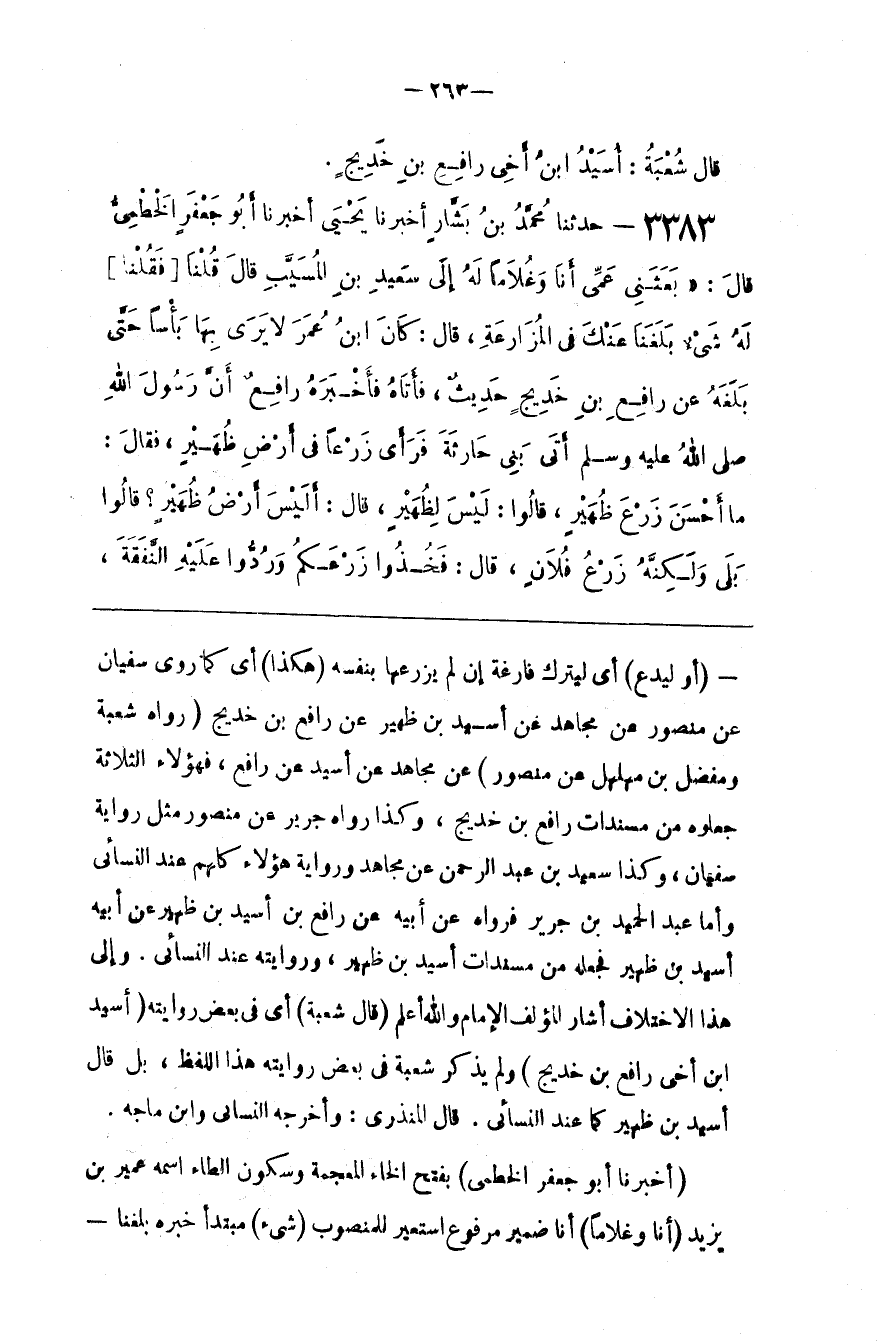 — ٢٦٣ —
قال شُعْبَةُ : أُسَيْدُ ابنُ أَخِى رافِعِ بنِ خَدِيجٍ .
٣٣٨٣ — حدثنا مُحمَّدُ بنُ بَشَّارٍ أخبرنا يَحْيَى أخبرنا أَبُو جَعْفَرٍ الْخَطْمِىُّ
قالَ : « بَعَثَنِى عَمِّى أَنَا وَغُلَاماً لَهُ إلَى سَعِيدِ بنِ المُسَيَّبِ قالَ قُلْنَا [ فَقُلْنَا ]
لَهُ شَىْءٌ بَلَغَنَا عَنْكَ فى المُزَارعَةِ ، قال : كَانَ ابنُ عُمَرَ لا يَرَى بِهَا بَأْساً حَتَّى
بَلَغَهُ عن رافِعِ بنِ خَدِيجٍ حَدِيثٌ ، فأتَاهُ فأخْبَرَهُ رافِعٌ أنَّ رَسُولَ اللهِ
صلى اللهُ عليه وسلم أَتَى بَنِى حارثَةَ فَرَأى زَرْعاً فى أَرْضِ ظُهَيْرٍ ، فقالَ :
ما أَحْسَنَ زَرْعَ ظُهَيْرٍ ، قالُوا : لَيْسَ لِظُهَيْرٍ ، قال : أَلَيْسَ أَرْضُ ظُهَيْرٍ ؟ قالُوا
بَلَى وَلَكِنَّهُ زَرْعُ فُلَانٍ ، قال : فَخُذُوا زَرْعَكم وَرُدُّوا عَلَيْهِ النَّفَقَةَ ،
— (أو ليدع) أى ليترك فارغة إن لم يزرعها بنفسه (هكذا) أى كما روى سفيان
عن منصور عن مجاهد عن أسيد بن ظهير عن رافع بن خديج ( رواه شعبة
ومفضل بن مهلهل عن منصور ) عن مجاهد عن أسيد عن رافع ، فهؤلاء الثلاثة
جعلوه من مسندات رافع بن خديج ، وكذا رواه جرير عن منصور مثل رواية
سفيان ، وكذا سعيد بن عبد الرحمن عن مجاهد ورواية هؤلاء كلهم عند النسائى
وأما عبد الحميد بن جرير فرواه عن أبيه عن رافع بن أسيد بن ظهير عن أبيه
أسيد بن ظهير فجعله من مسندات أسيد بن ظهير ، وروايته عند النسائى . وإلى
هذا الاختلاف أشار المؤلف الإمام والله أعلم (قال شعبة) أى فى بعض روايته ( أسيد
ابن أخى رافع بن خديج ) ولم يذكر شعبة فى بعض روايته هذا اللفظ ، بل قال
أسيد بن ظهير كما عند النسائى . قال المنذرى : وأخرجه النسائى وابن ماجه .
(أخبرنا أبو جعفر الخطمى) بفتح الخاء المعجمة وسكون الطاء اسمه عمير بن
يزيد (أنا وغلاماً) أنا ضمير مرفوع استعير للمنصوب (شىء) مبتدأ خبره بلغنا —